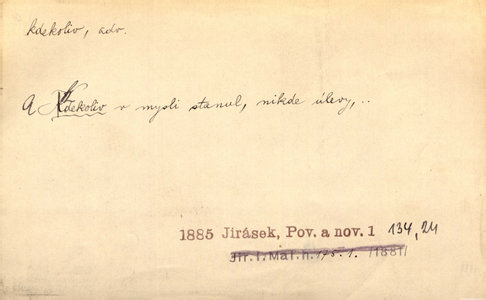 kdekoliv, adv.
A Kdekoliv v mysli stanul, nikde úlevy,..
1885 Jirásek, Pov. a nov. 1 134,24
Jir. I. Mal. h. 175.1. /1881/